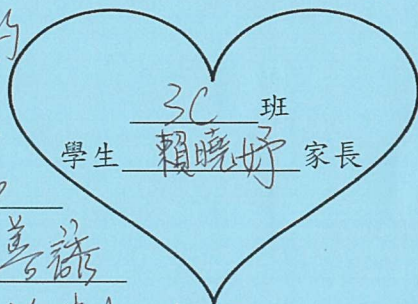 3C 班
學生 賴曉妤 家長
善誘